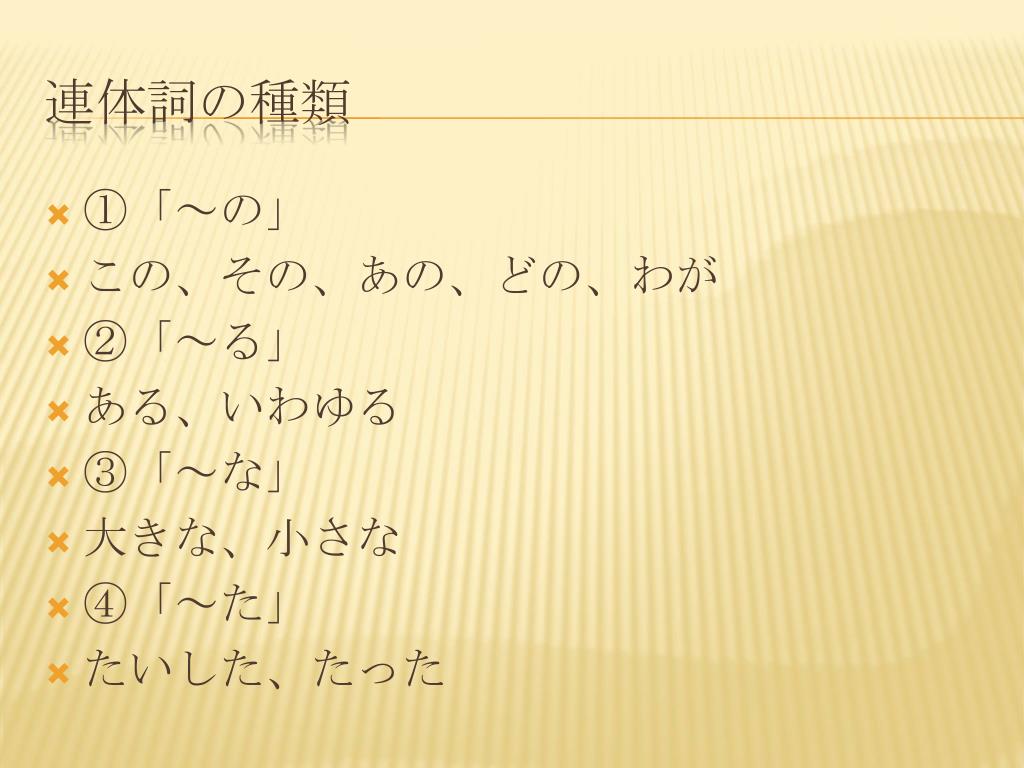 連体詞の種類
①「～の」
この、その、あの、どの、わが
②「～る」
ある、いわゆる
③「～な」
大きな、小さな
④「～た」
たいした、たった